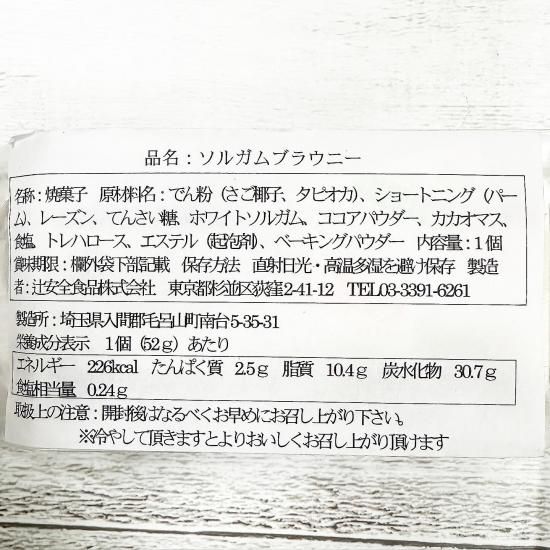 品名：ソルガムブラウニー
名称：焼菓子　原材料名：でん粉（さご椰子、タピオカ）、ショートニング（パー
ム）、レーズン、てんさい糖、ホワイトソルガム、ココアパウダー、カカオマス、
食塩、トレハロース、エステル（起泡剤）、ベーキングパウダー　内容量：１個
賞味期限：欄外袋下部記載　保存方法　直射日光・高温多湿を避け保存　製造
者：辻安全食品株式会社　東京都杉並区荻窪2-41-12　TEL03-3391-6261
製造所：埼玉県入間郡毛呂山町南台5-35-31
栄養成分表示　１個（52ｇ）あたり
エネルギー　226kcal　たんぱく質　2.5ｇ　脂質　10.4ｇ　炭水化物　30.7ｇ
食塩相当量　0.24ｇ
取扱上の注意：開封後はなるべくお早めにお召し上がり下さい。
※冷やして頂きますとよりおいしくお召し上がり頂けます